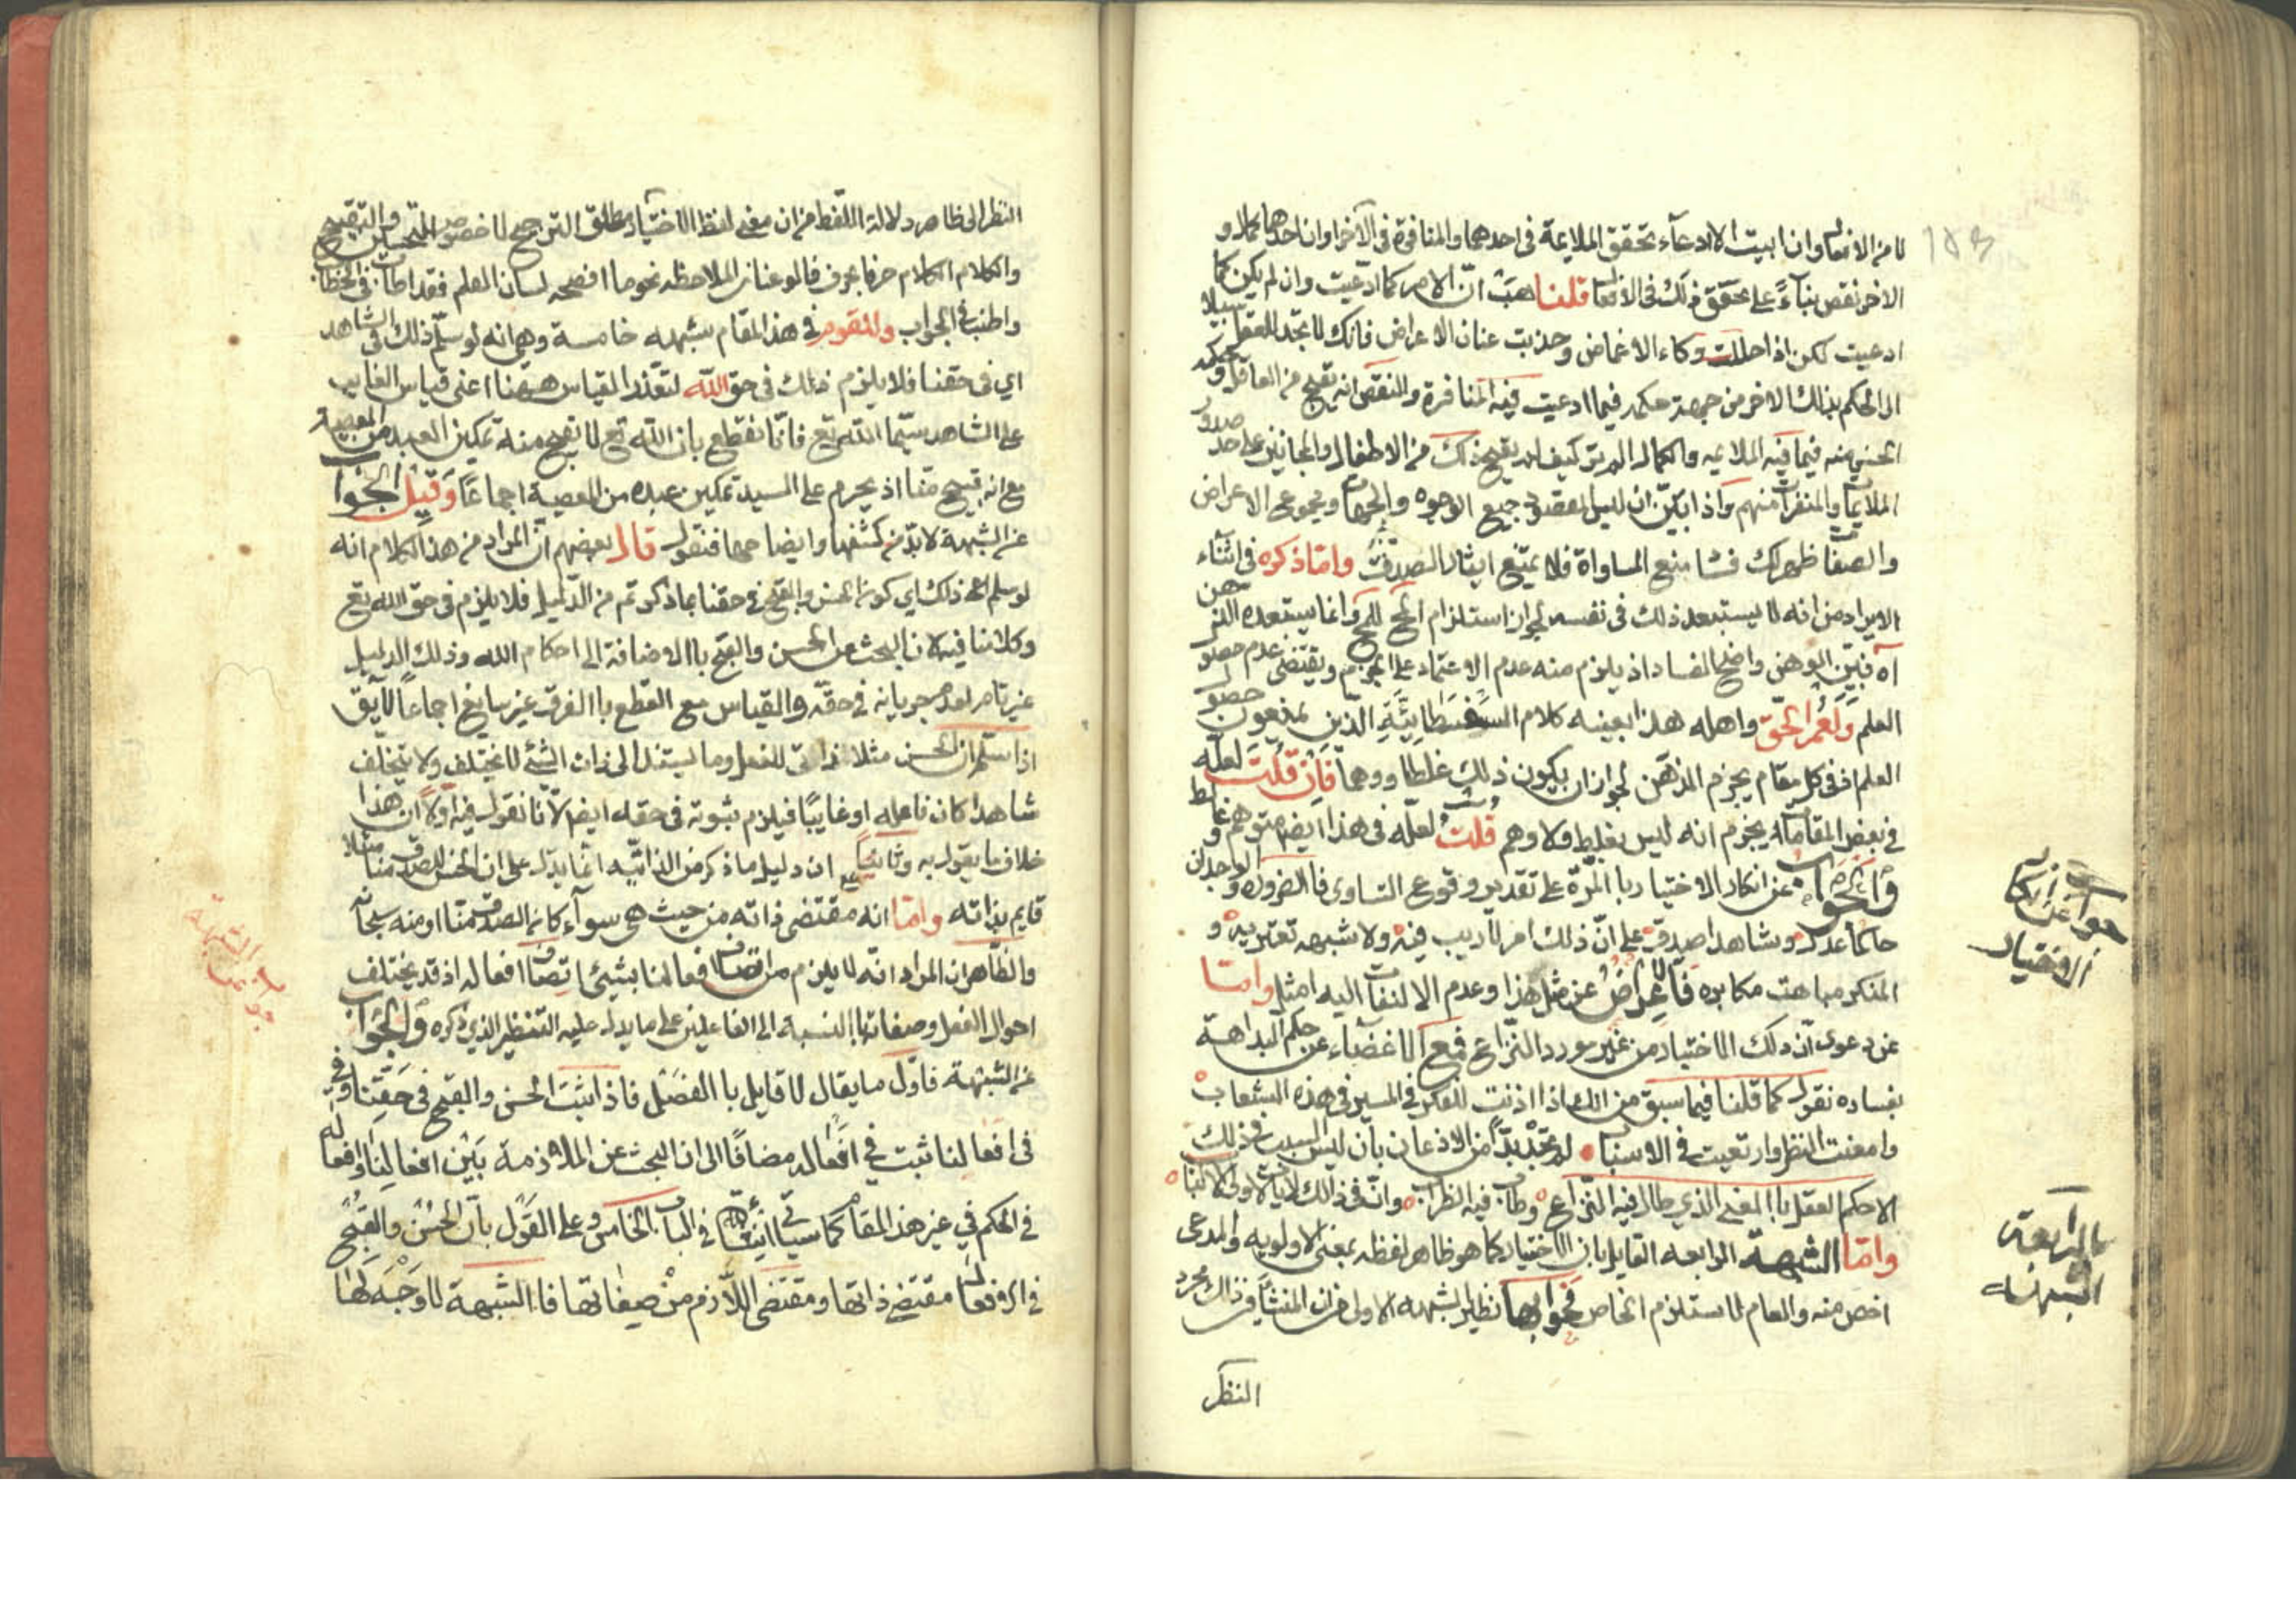 لا من الافعال وان ابيت الا ادعآء تحقق الملايمة في احدهما والمنافرة في الآخر او ان احدهما كمال و
الاخر نقص بنآءً على تحقق ذلك في الافعال قلنا هب انّ الامر كما ادّعيت وان لم يكن كما
ادعيت لكن اذا حللت وكاء الاغماض وجذبت عنان الاعراض فانك لا تجد للعقل سبيلا
الى الحكم بذلك الاخر من جهة حكمه فيما ادعيت فيه المنافرة والنقص انه يقبح من العاقل وحكمه
الحسن منه فيما فيه الملايمه والكمال الم تر كيف لم يقبح ذلك من الاطفال والمجانين على حد صدور
الملايمات والمنفرات منهم واذا تبيّن ان ليس المقصود جميع الوجوه والجهات ومجموع الاعراض
والصفات ظهر لك فساد منع المساواة فلا يمتنع ايثار الصدق وامّا ذكره في اثنآء
الايراد من انه لا يستبعد ذلك في نفسه لجواز استلزام المح للمح وانما يستبعده الذهن
آه فبيّن الوهن واضح الفساد اذ يلزم منه عدم الاعتماد على الجزم ويقتضى عدم حصول
العلم ولعمر الحقّ واهله هذا بعينه كلام السفسطايتَّةِ الذين يمنعون حصول
العلم اذ في كل مقام يجزم الذهن لجواز ان يكون ذلك غلطا ووهما فان قلت لعلّه
في بعض المقامات يجزم انه ليس بغلط ولا وهم قلت لعلّه في هذا ايضا متوهم غالط و
والجواب عن انكار الاختيار بالمرّة على تقدير وقوع التساوى فالضروره والوجدان
حاكما عدل وشاهدا صدق على انّ ذلك امر لا ريب فيه ولا شبهه تعتريه و
المنكر مباهت مكابره فالاعراض عن مثل هذا وعدم الالتفات اليه امثل وامّا
عن دعوى انّ ذلك الاختيار من غير مورد النّزاع فمع الاغضاء عن حكم البداهة
بفساده نقول كما قلنا فيما سبق من انك اذا اذنت للفكر في المسير في هذه الشعاب
وامعنت النظر وارتعيت في الاسباب لم تجد بدًّا من الاذعان بان ليس السبب في ذلك
الا حكم العقل بالمعنى الذي طال فيه النّزاع وطاب فيه النظر وانّ في ذلك لآيات لاولى الالباب
وامّا الشبهة الرابعه القايل بان الاختيار كما هو ظاهر لفظه بمعنى الاولويه والمدعى
اخص منه والعام لا يستلزم الخاص فجوابها نظير الشبهه الاولى فان المنشأ في ذلك مجرد
النظر
جواب عن انكار
الاختيار
الرابعة
الشبهه
النظر الى ظاهر دلالة اللفظ من ان معنى لفظ الاختيار مطلق الترجيح لا خصوص التحسين والتقبيح
والكلام الكلام حرفا بحرف فالو عنان الملاحظه نحو ما افصحه لسان القلم فقد اطاب في الخطاب
واطنب في الجواب وللقوم في هذا المقام شبهه خامسة وهي انه لو سلّم ذلك في الشاهد
اي في حقنا فلا يلزم ذلك في حق الله لتعذر القياس هيهنا اعنى قياس الغايب
على الشاهد سيّما الله تع فانّا نقطع بان الله تع لا يقبح منه تمكين العبد من المعصية
مع انه قبيح منّا اذ يحرم على السيد تمكين عبده من المعصية اجماعًا وقبل الجواب
عن الشبهة لا بدّ من كشفها وايضاحها فنقول قال بعضهم انّ المراد من هذا الكلام انه
لو سلم ذلك اي كون الحسن والقبح في حقنا بما ذكر تم من الدّليل فلا يلزم في حق الله تع
وكلامنا فيه لان البحث عن الحسن والقبح بالاضافة الى احكام الله وذلك الدليل
غير تام لعدم جريانه في حقّه والقياس مع القطع بالفرق غير سايغ اجماعًا لا يق
اذا سلّم ان الحسن مثلا ذاتى للفعل وما يستند الى ذات الشئ لا يختلف ولا يتخلف
شاهدًا كان فاعله او غايبًا فيلزم ثبوته في حقه ايض لانّا نقول فيه اولا انّ هذا
خلاف ما يقول به وثانيًا ان دليل ما ذكر من الذاتيّه انما يدل على ان الحسن للصدق منّا مثلا
قايم بذاته وامّا انه مقتضى ذاته من حيث هي سوآء كان الصدق منّا او منه سبحانه
والظّاهر ان المراد انّه لا يلزم من اتصاف افعالنا بشئ اتصاف افعاله اذ قد يختلف
احوال الفعل وصفاتها بالنسبة الى الفاعلين على ما يدل عليه التنظير الذي ذكره والجواب
عن الشبهة فاوّل ما يقال لا قايل بالفصل فاذا ثبت الحسن والقبح في حقّنا وفي
في افعالنا ثبت في افعاله مضافًا الى ان البحث عن الملازمة بين افعالنا وافعاله
في الحكم في غير هذا المقام كما سيأتي انش الله في الباب الخامس وعلى القول بانّ الحسن والقبح
في الافعال مقتضى ذاتها ومقتضى اللّازم من صفاتها فالشبهة لا وجه لها